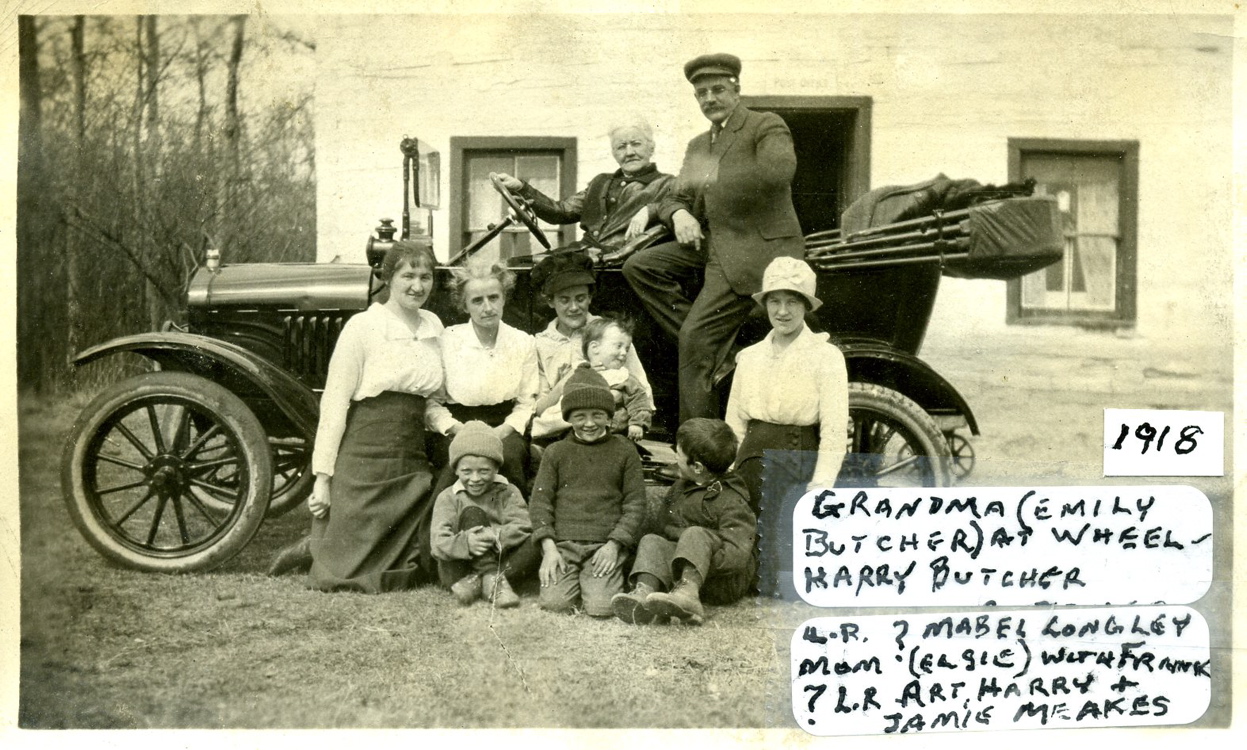 POST OFFICE
1918
GRANDMA (EMILY
BUTCHER) AT WHEEL-
HARRY BUTCHER
L.R. ? MABEL LONGLEY
MOM (ELSIE) WITH FRANK
? L.R ART, HARRY +
JAMIE MEAKES